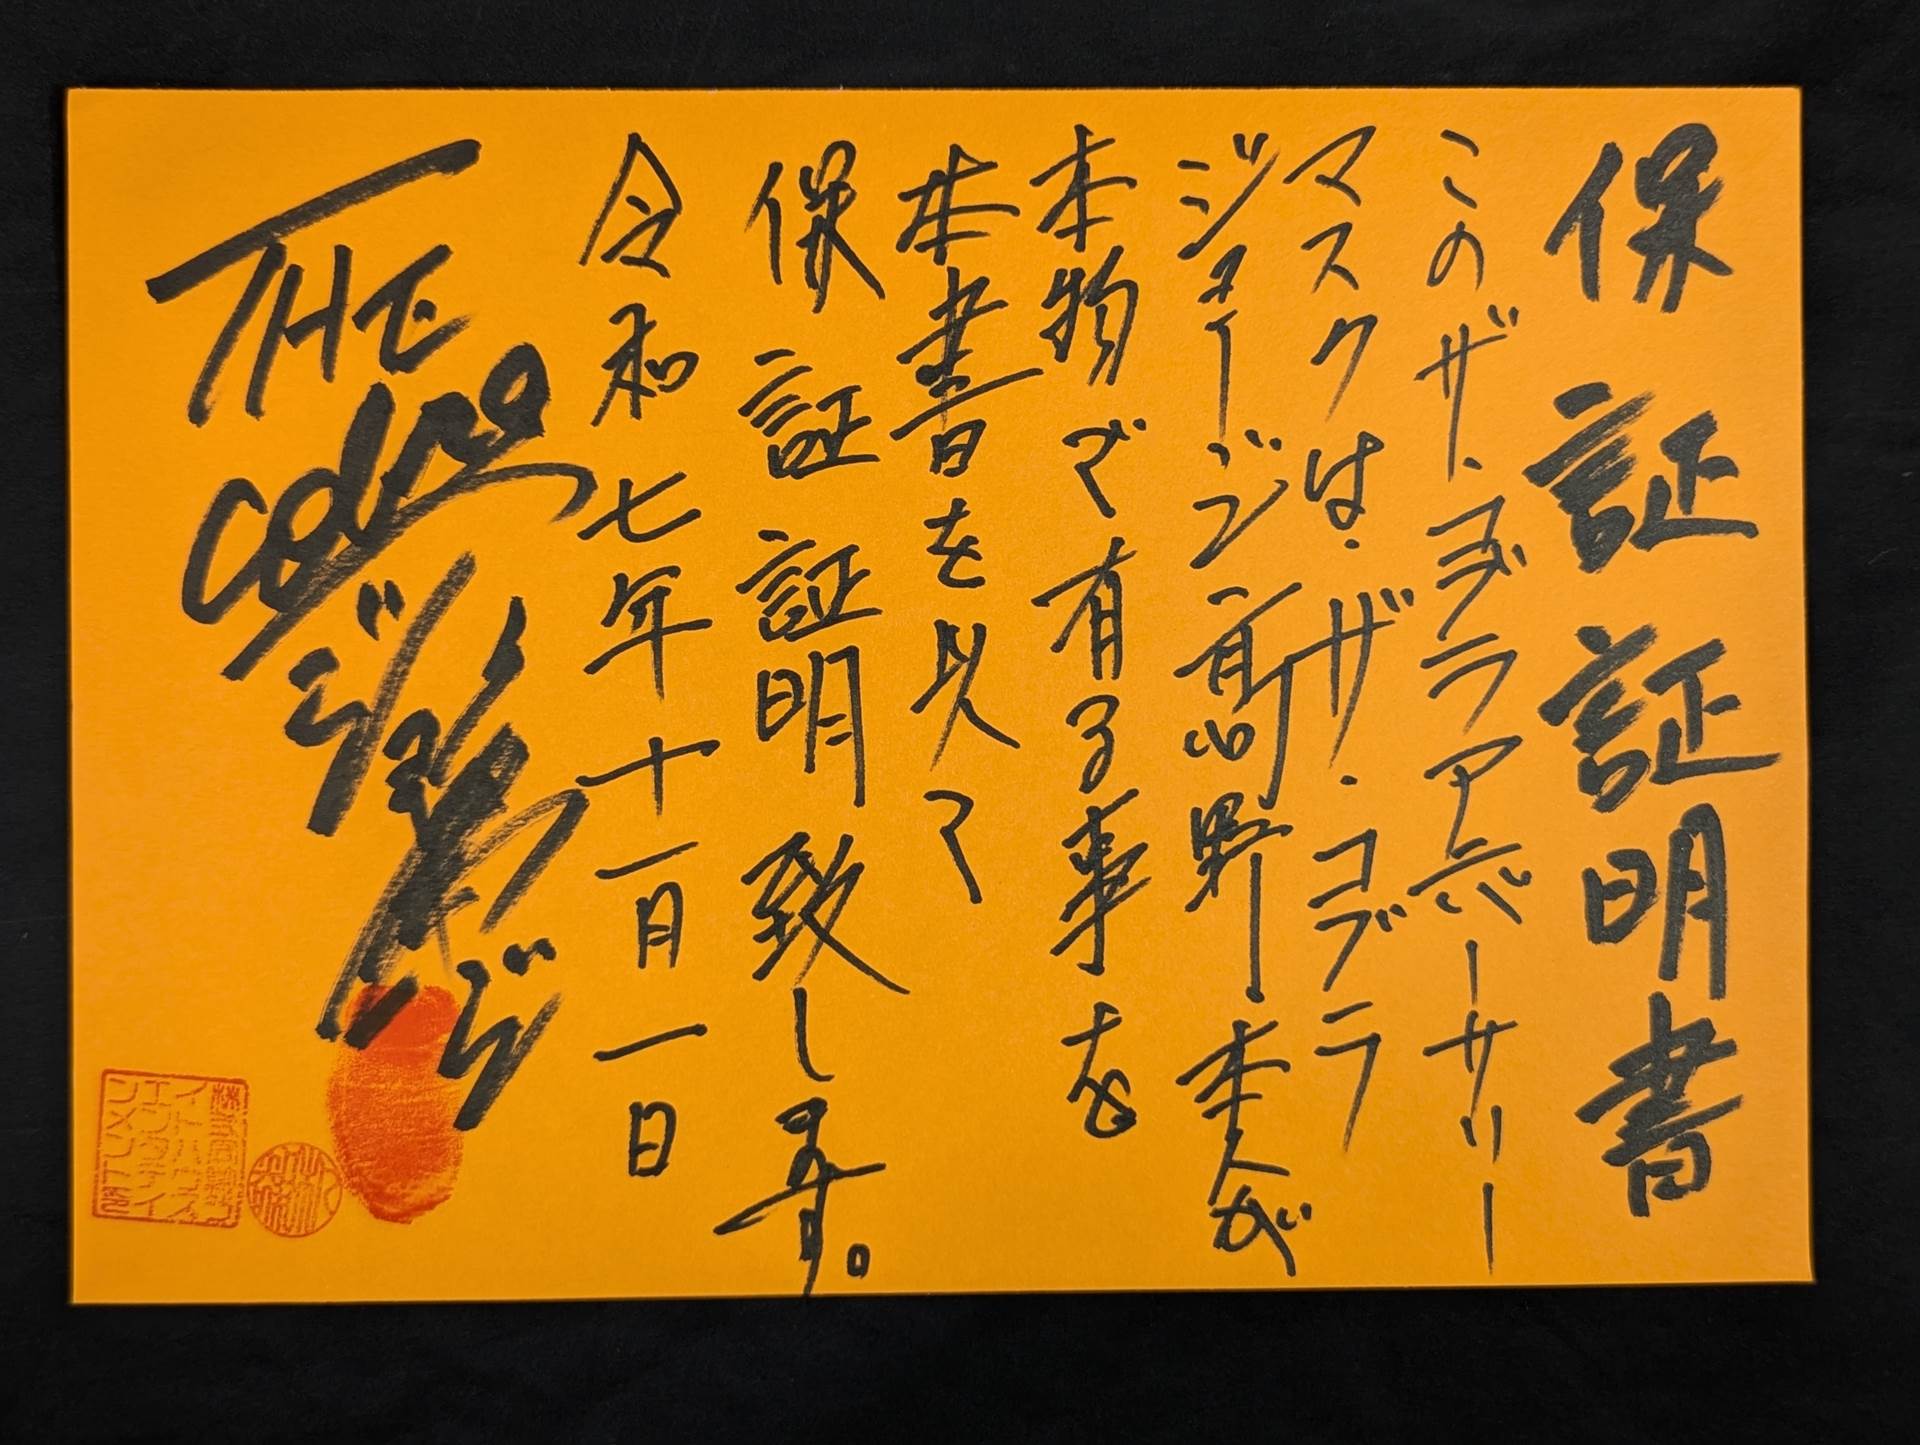 保証証明書
このザ・コブラアニバーサリー
マスクは、ザ・コブラ
ジョージ高野本人が
本物で有る事を
本書を以て
保証証明致します。
令和七年十一月一日
THE cobra
ジョージ